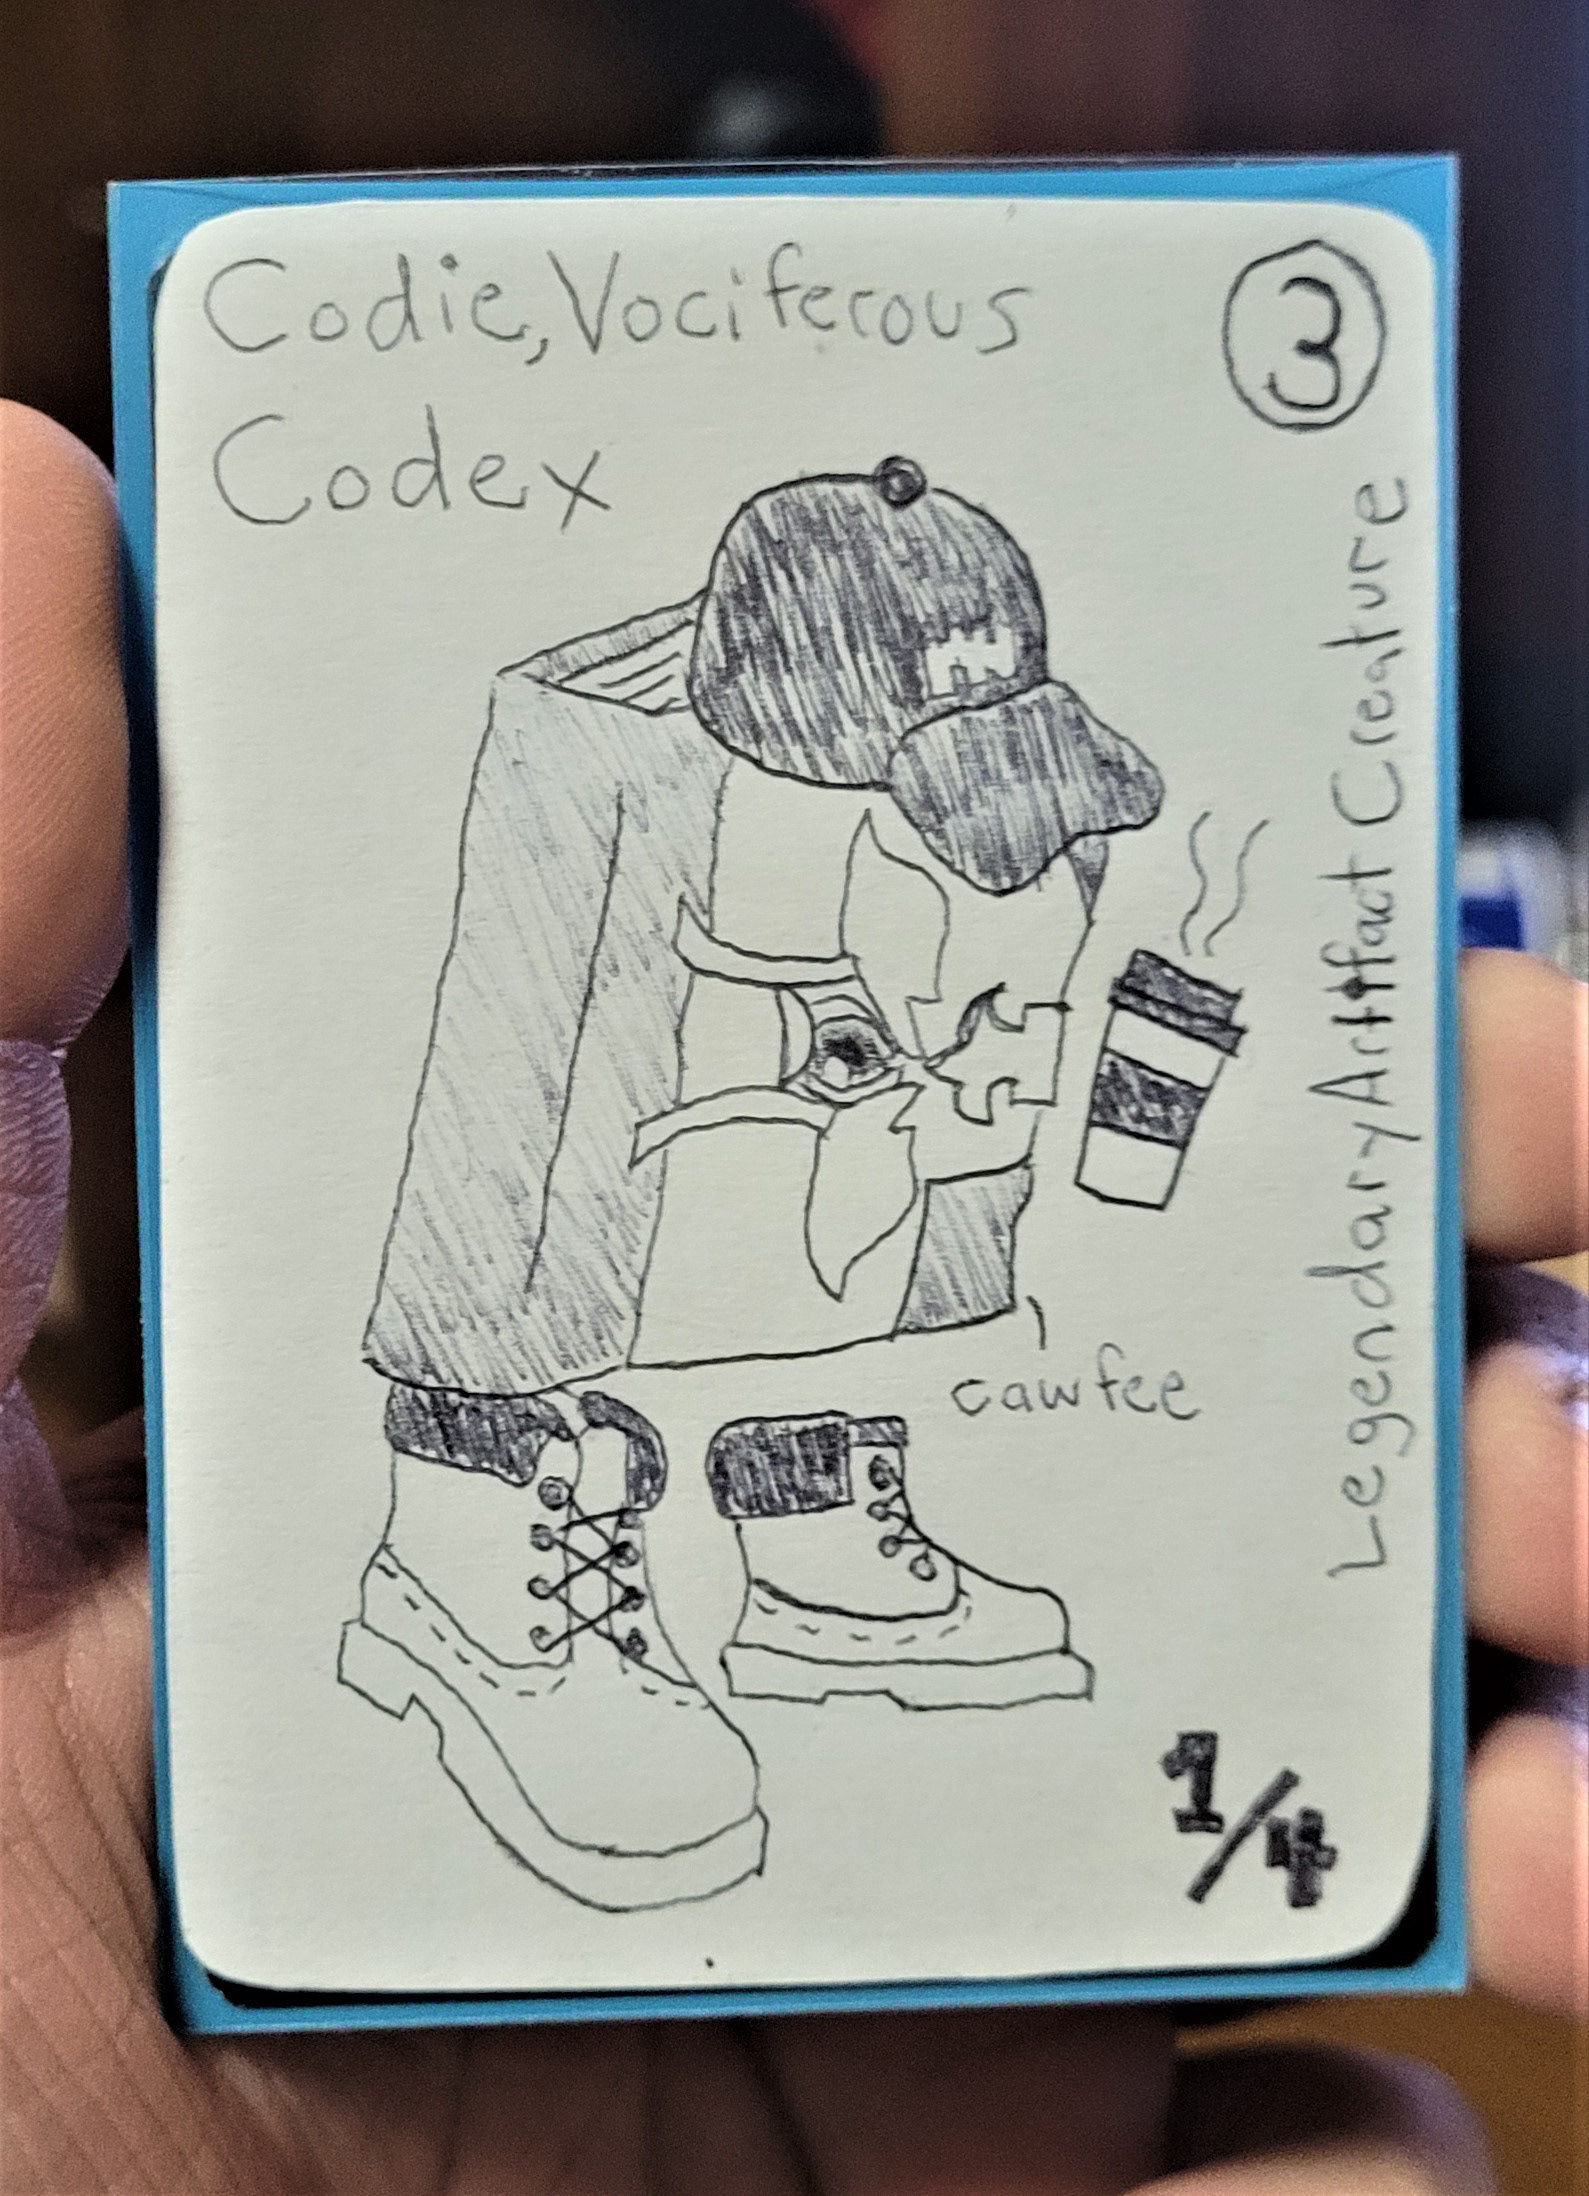 Codie, Vociferous
Codex
3
Legendary Artifact Creature
cawfee
1/4